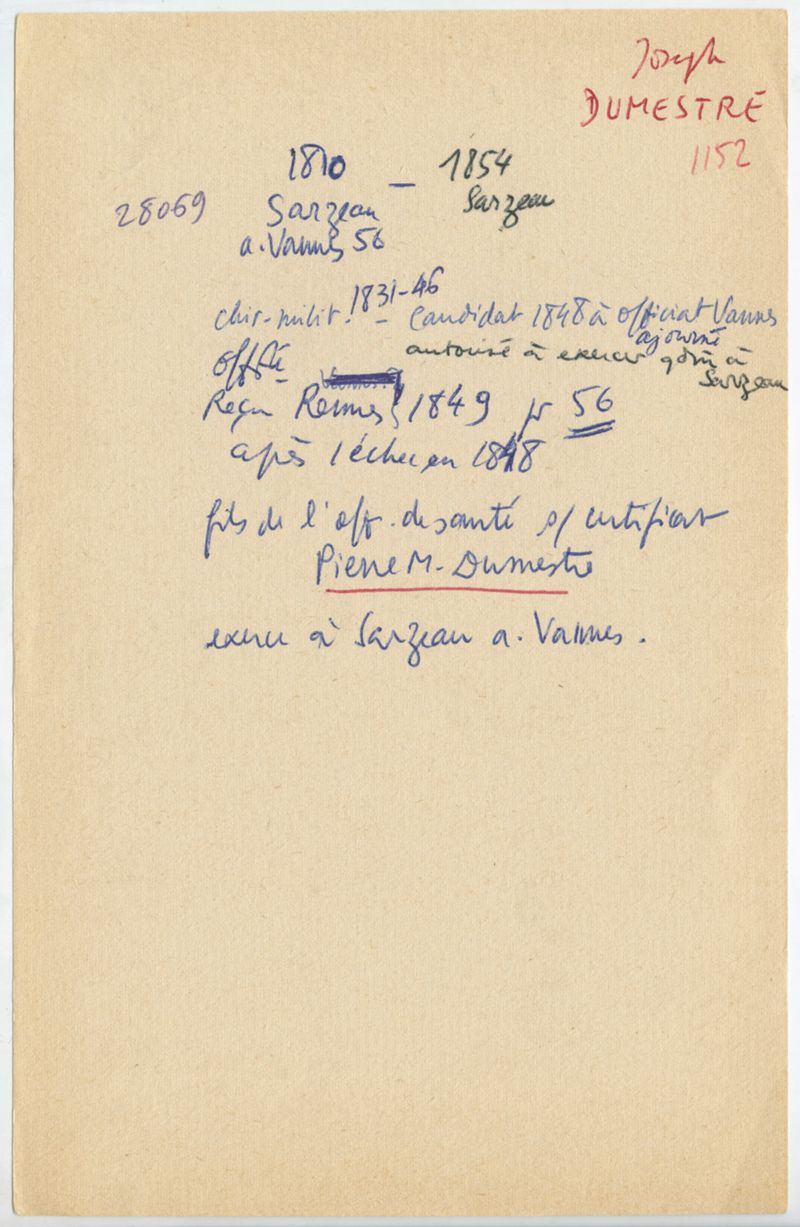 Joseph
DUMESTRE
1152
1810 – 1854
28069 Sarzeau Sarzeau
a. Vannes 56
chir-milit. 1831-46 – candidat 1848 à officiat Vannes
ajourné
offsté autorisé à exercer qdm à
Sarzeau
Reçu Rennes 1849 pr 56
après 1 échec en 1848
fils de l'off. de santé s/ certificat
Pierre M. Dumestre
exerce à Sarzeau a. Vannes.